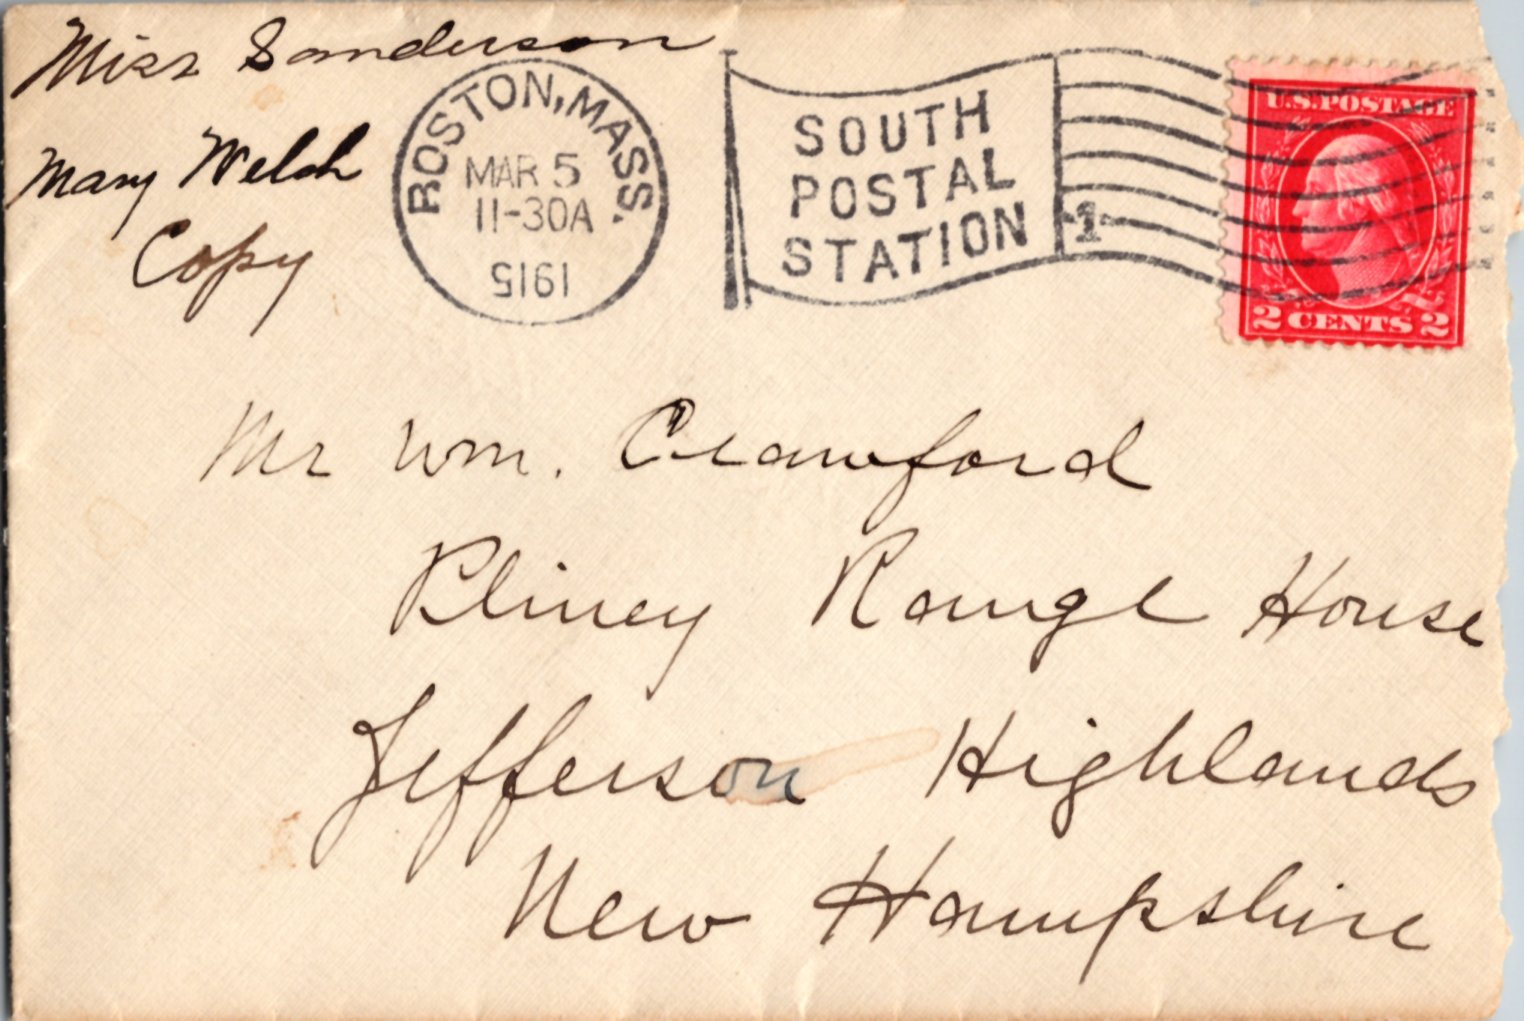 Miss Sanderson
Mary Welch
Copy
BOSTON, MASS.
MAR 5
11-30A
1915
SOUTH
POSTAL
STATION
1
U.S. POSTAGE
2 CENTS 2
Mr Wm. Crawford
Pliney Range House
Jefferson Highlands
New Hampshire